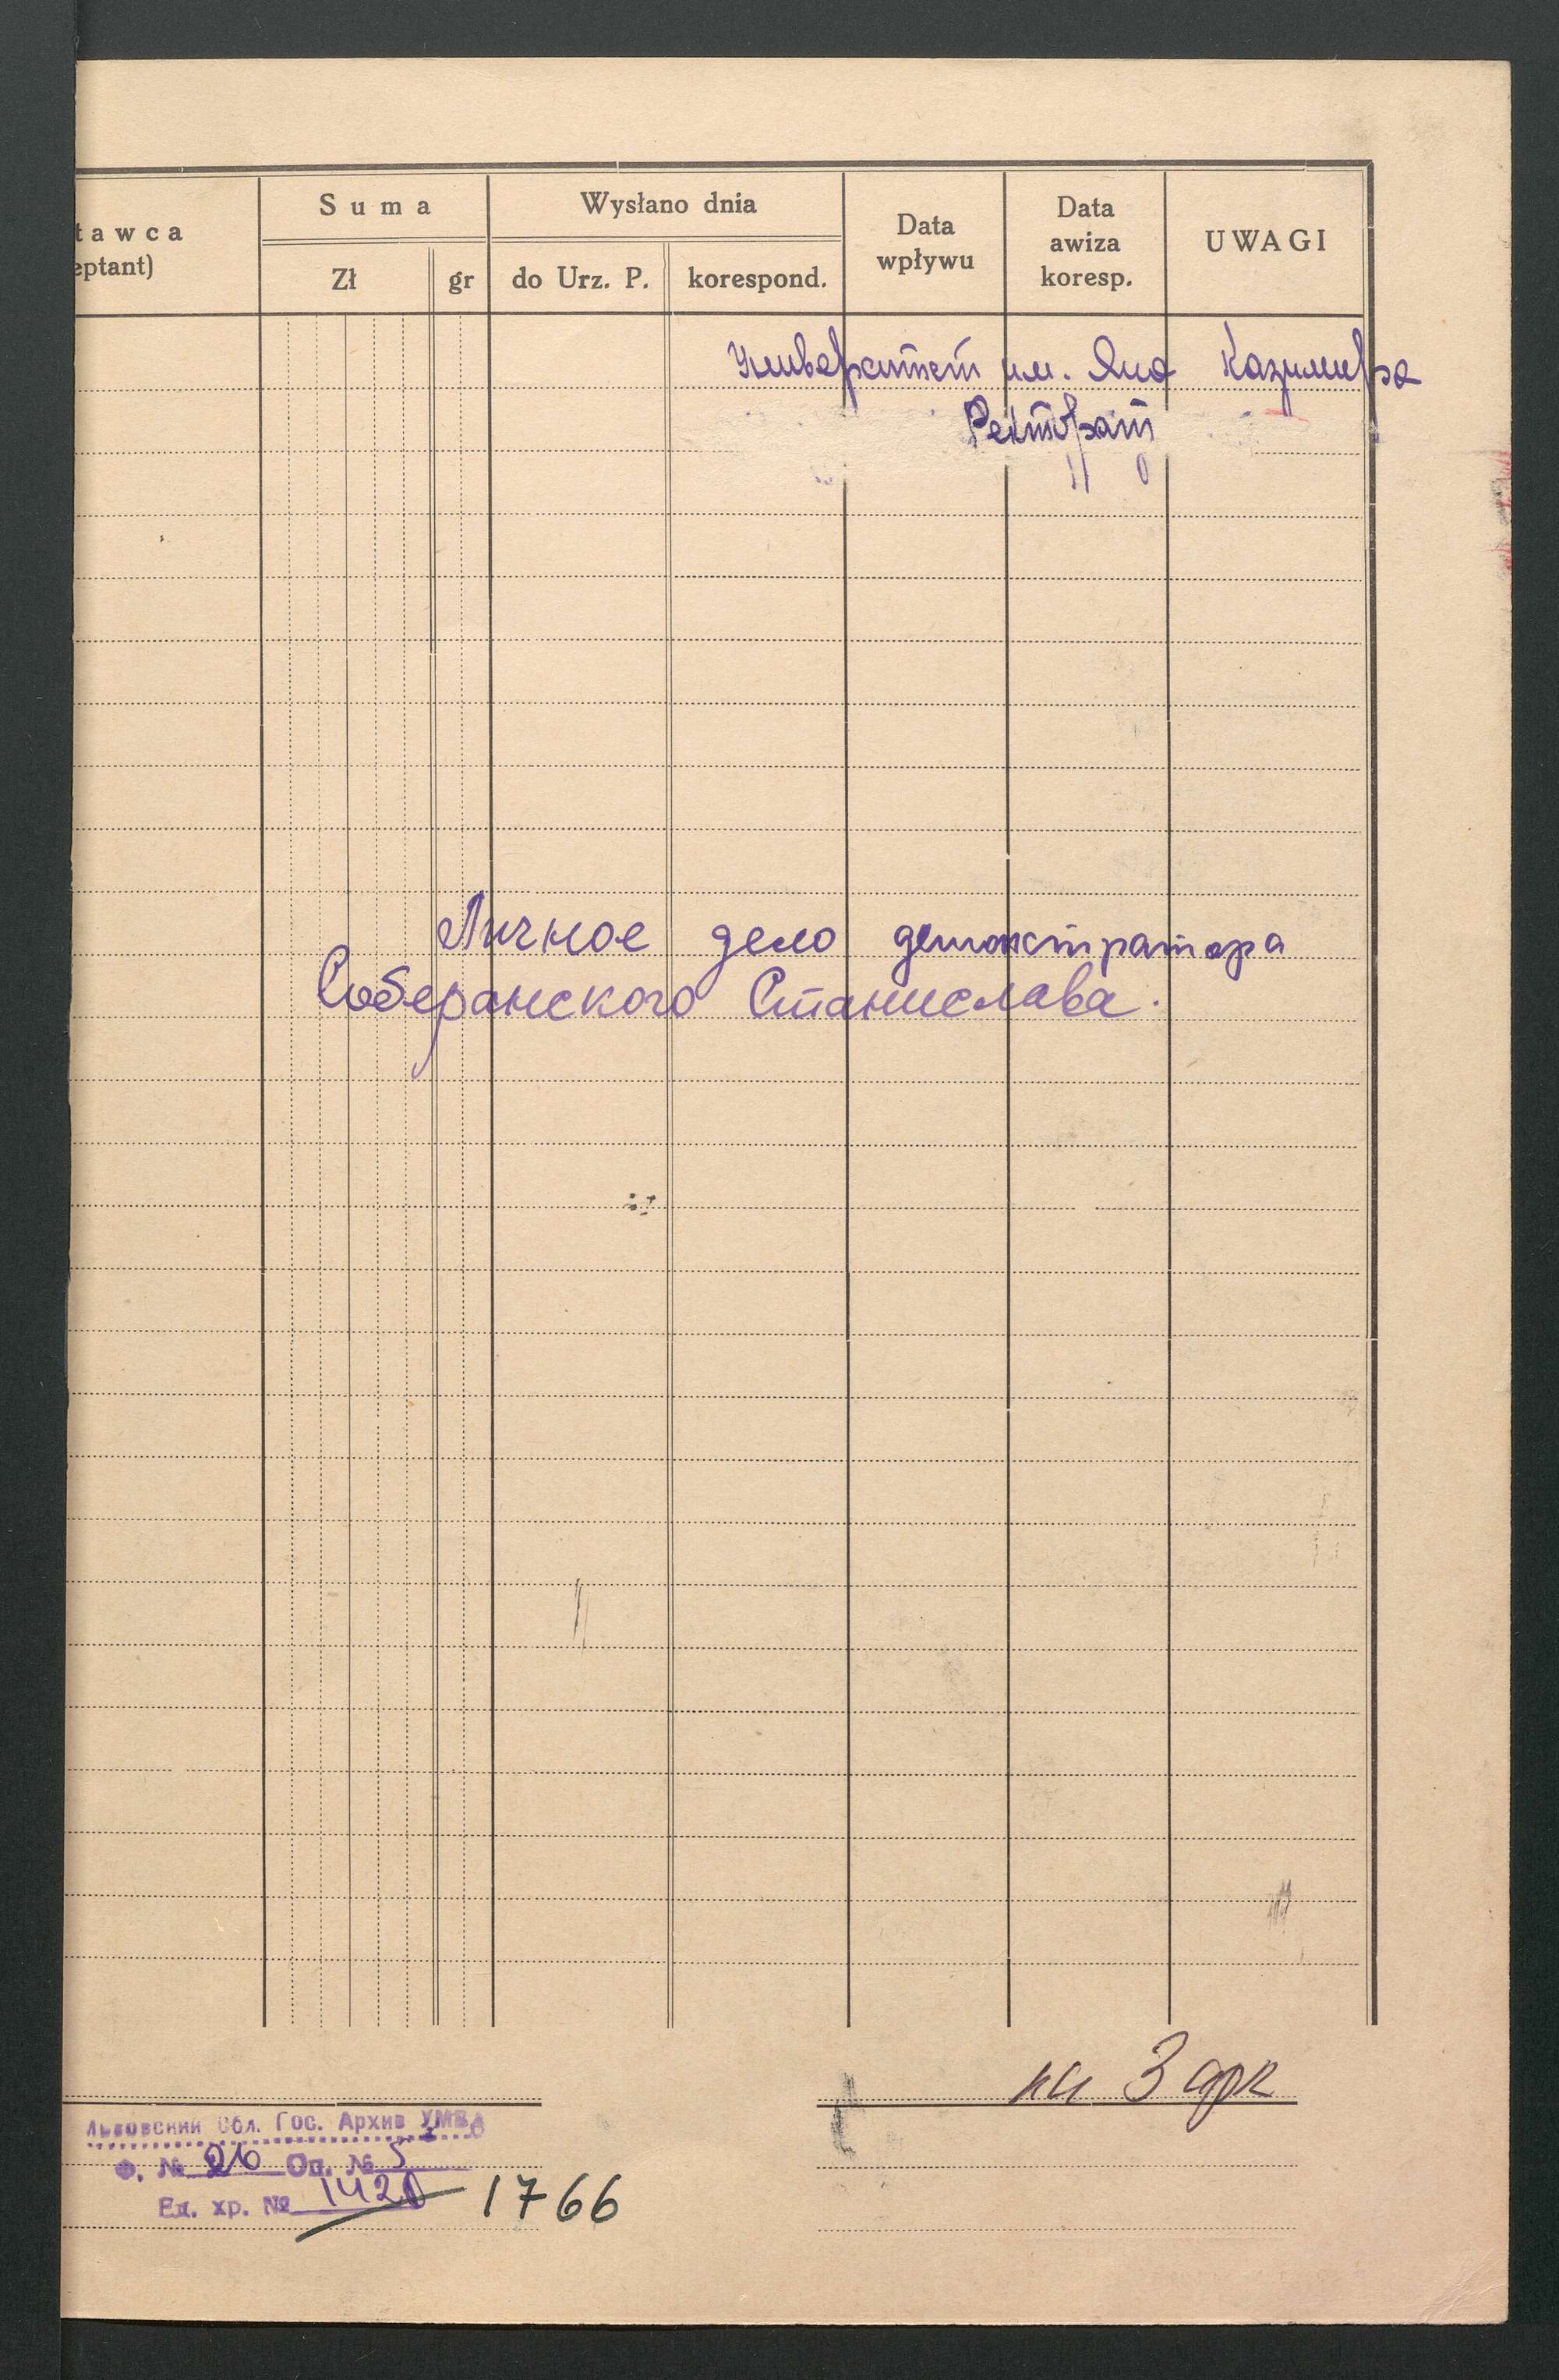 Suma
Wysłano dnia
tawca
eptant)
Zł
gr
do Urz. P.
korespond.
Data
wpływu
Data
awiza
koresp.
UWAGI
Университет им. Яна Казимира
Ректорат
Личное дело демонстратора
Соберанского Станислава.
на 3 арк
Львовский Обл. Гос. Архив УМВД
Ф. № 26 Оп. № 5
Ед. хр. № 1420 1766